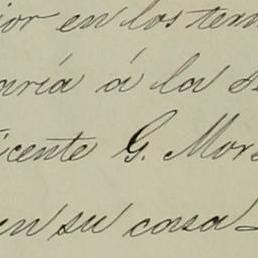 ior en los term
aría á la s
icente G. Mor
en su casa